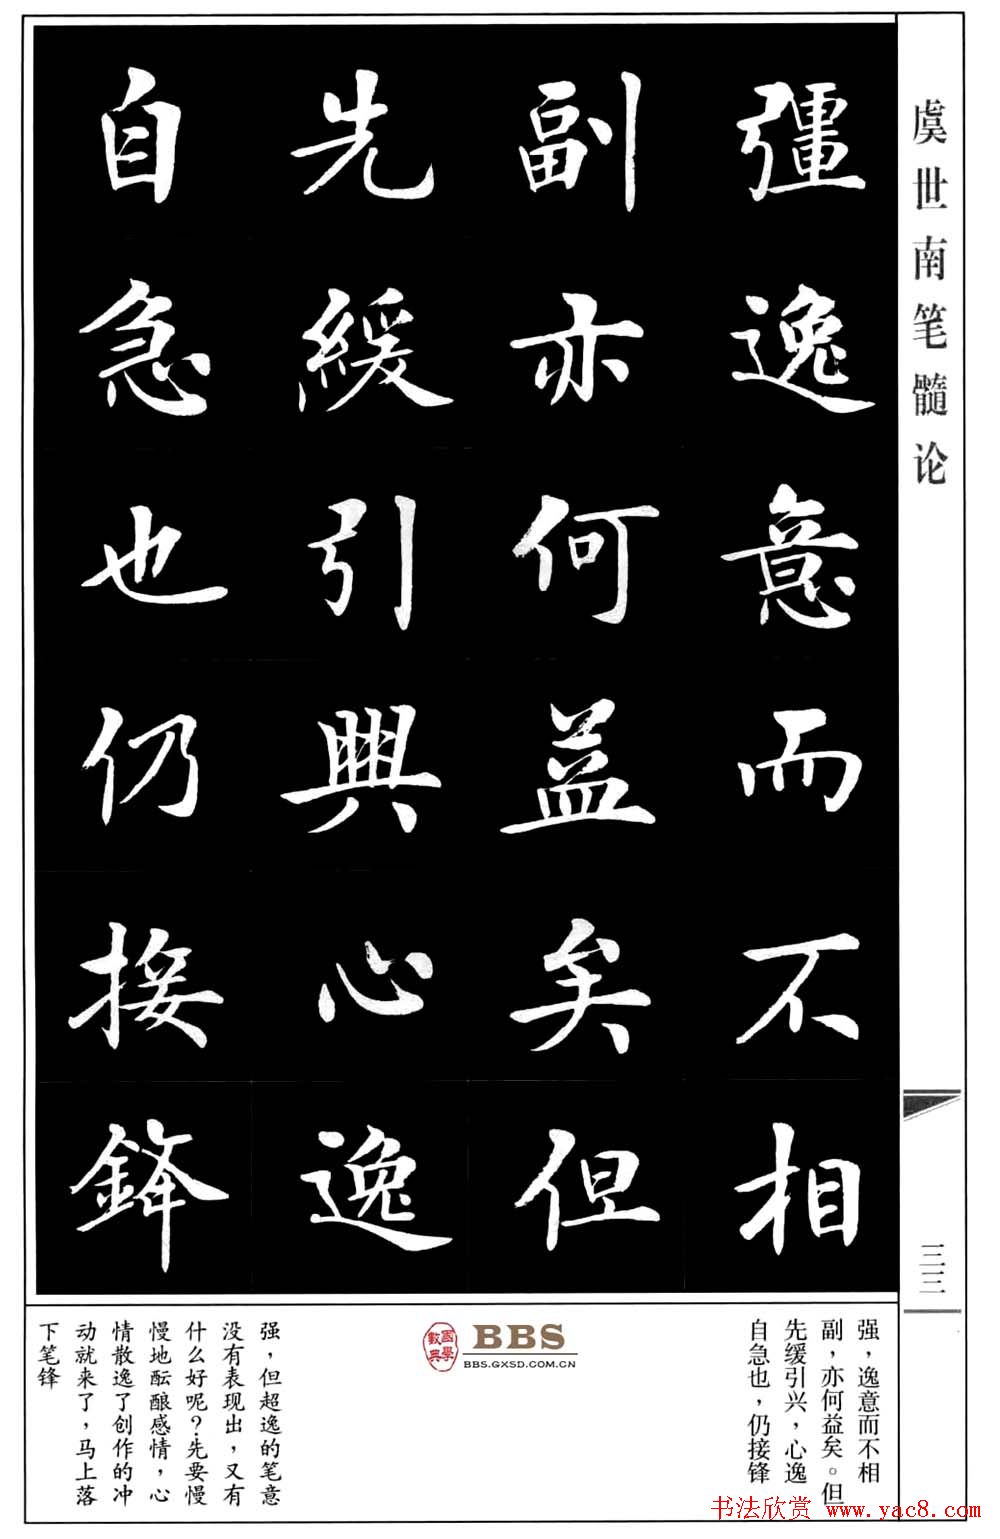 虞世南笔髓论
彊逸意而不相
副亦何益矣但
先緩引興心逸
自急也仍接鋒
三三
强，逸意而不相
副，亦何益矣。但
先缓引兴，心逸
自急也，仍接锋
國學
數典
BBS
BBS.GXSD.COM.CN
强，但超逸的笔意
没有表现出，又有
什么好呢？先要慢
慢地酝酿感情，心
情散逸了创作的冲
动就来了，马上落
下笔锋
书法欣赏 www.yac8.com